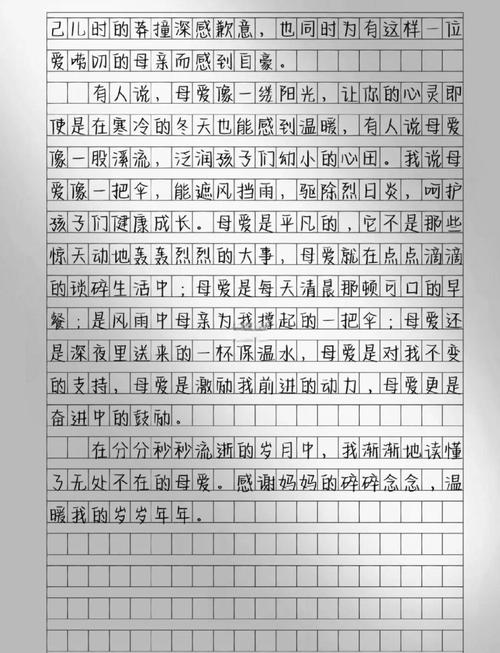 己儿时的莽撞深感歉意，也同时为有这样一位
爱唠叨的母亲而感到自豪。
有人说，母爱像一缕阳光，让你的心灵即
使是在寒冷的冬天也能感到温暖，有人说母爱
像一股溪流，泛润孩子们幼小的心田。我说母
爱像一把伞，能遮风挡雨，驱除烈日炎，呵护
孩子们健康成长。母爱是平凡的，它不是那些
惊天动地轰轰烈烈的大事，母爱就在点点滴滴
的琐碎生活中；母爱是每天清晨那顿可口的早
餐；是风雨中母亲为我撑起的一把伞；母爱还
是深夜里送来的一杯保温水，母爱是对我不变
的支持，母爱是激励我前进的动力，母爱更是
奋进中的鼓励。
在分分秒秒流逝的岁月中，我渐渐地读懂
了无处不在的母爱。感谢妈妈的碎碎念念，温
暖我的岁岁年年。